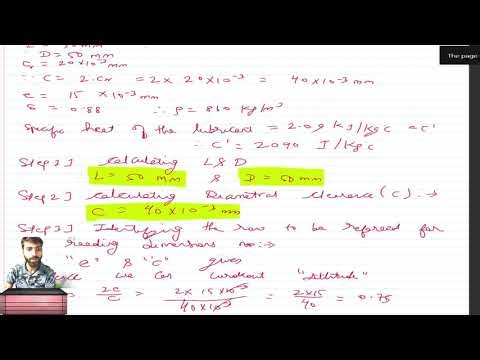 L = 50 mm
D = 50 mm
Cr = 20×10⁻³ mm
∴ C = 2·Cr = 2× 20×10⁻³ = 40×10⁻³ mm
e = 15 ×10⁻³ mm
S = 0.88 ∴ ρ = 860 kg/m³
Specific heat of the lubricant = 2.09 kJ/kg c = C'
∴ C' = 2090 J/kg C
Step 1] Calculating L & D
L = 50 mm & D = 50 mm
Step 2] Calculating Diametral clearance (C). →
C = 40×10⁻³ mm
Step 3] Identifying the row to be refreed for
reading dimensions no:→
"e" & "c" given
we can
"Attitude"
2e/C = 2× 15×10⁻³/40×10⁻³ = 2×15/40 = 0.75
The page